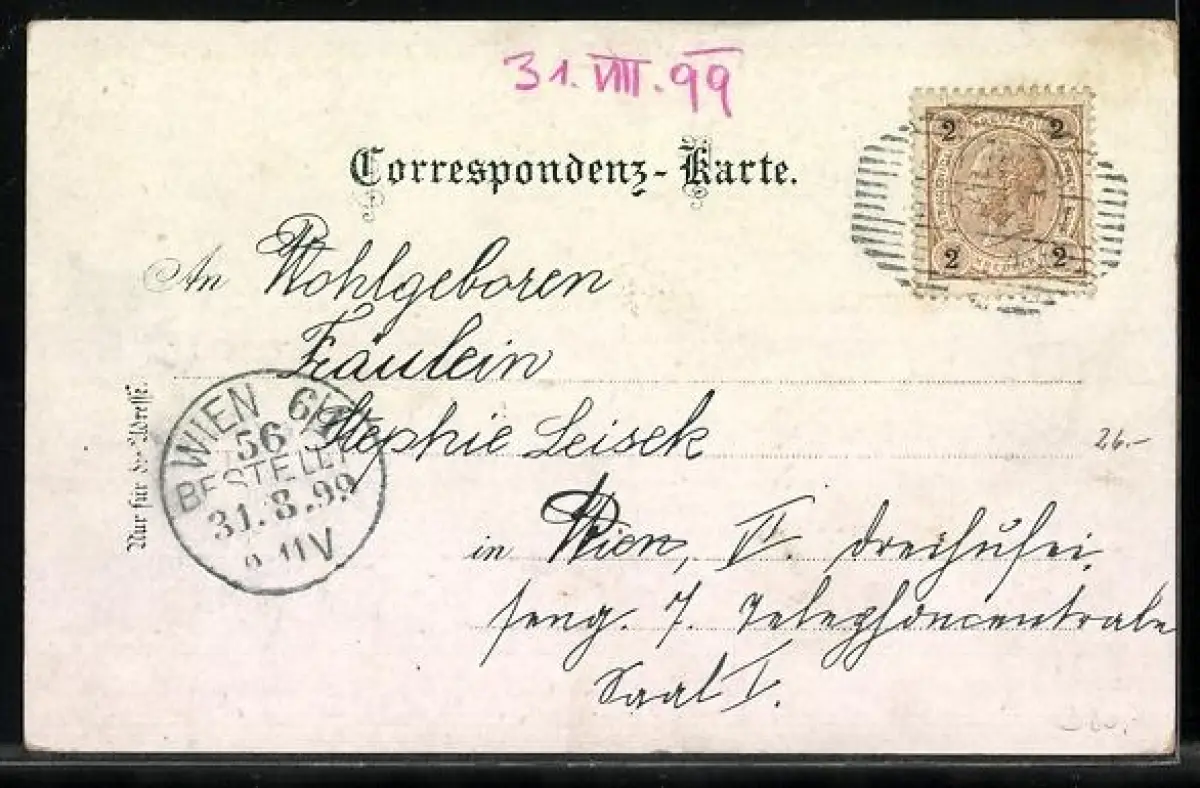 31. VIII. 99
Correspondenz-Karte.
2 2
2 2
An Wohlgeboren
Fräulein
Stephie Leisek
Nur für die Adresse.
WIEN 6/1
56
BESTELLT
31.8.99
11V
26.-
in Wien, V. dreihufei
seng. 7. Telephoncentrale
Saal I.